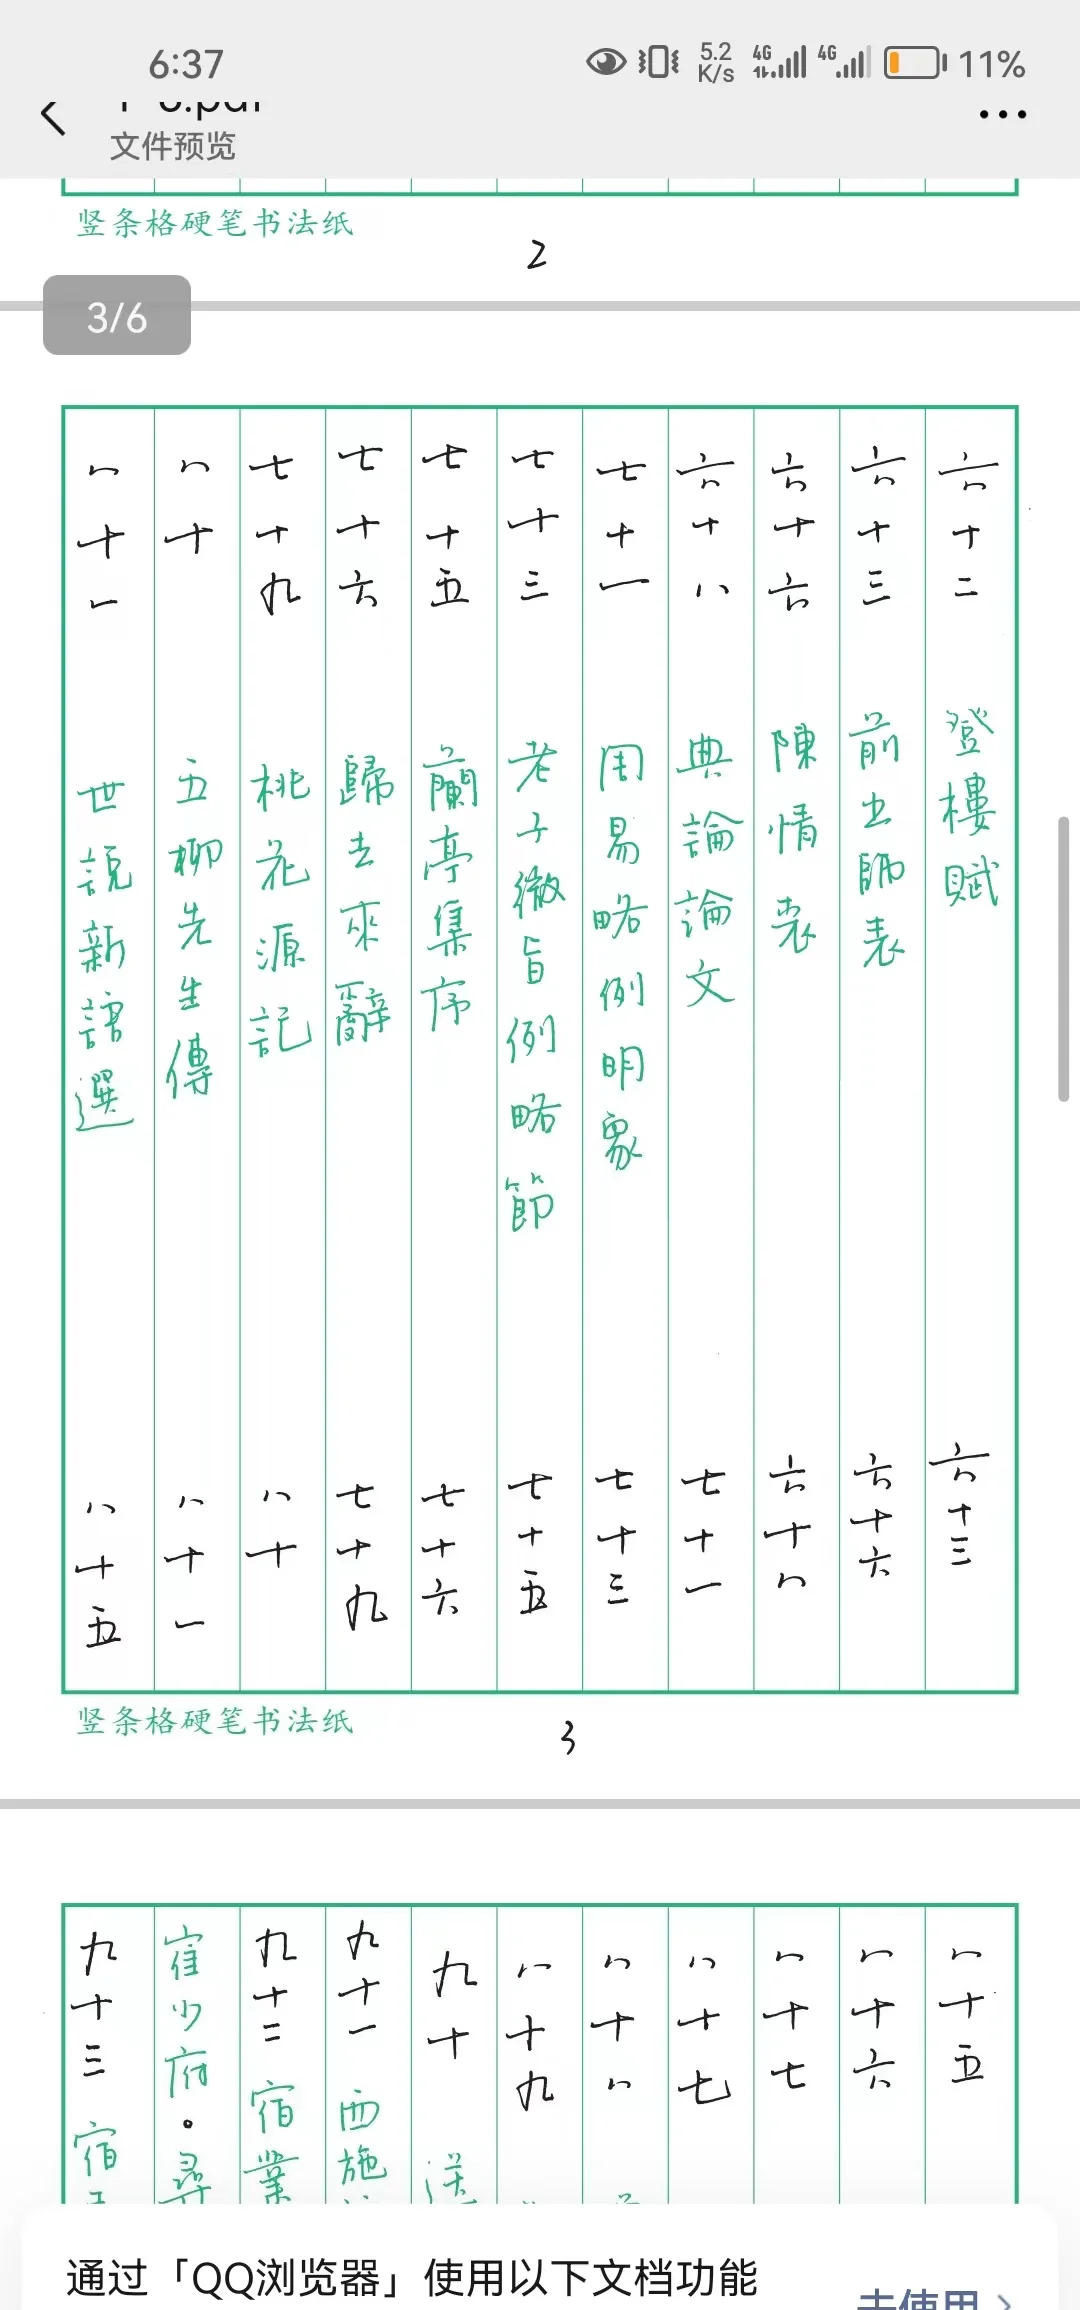 6:37
5.2 K/s 4G 4G 11%
文件预览
竖条格硬笔书法纸
2
3/6
六十二 登樓賦 六十三
六十三 前出師表 六十六
六十六 陳情表 六十八
六十八 典論論文 七十一
七十一 周易略例明象 七十三
七十三 老子微旨例略節 七十五
七十五 蘭亭集序 七十六
七十六 歸去來辭 七十九
七十九 桃花源記 八十
八十 五柳先生傳 八十一
八十一 世說新語選 八十五
竖条格硬笔书法纸
3
八十五
八十六
八十七
八十七
八十八
八十九
九十 送
九十一 西施
九十二 宿業
崔少府。尋
九十三 宿
通过「QQ浏览器」使用以下文档功能
去使用